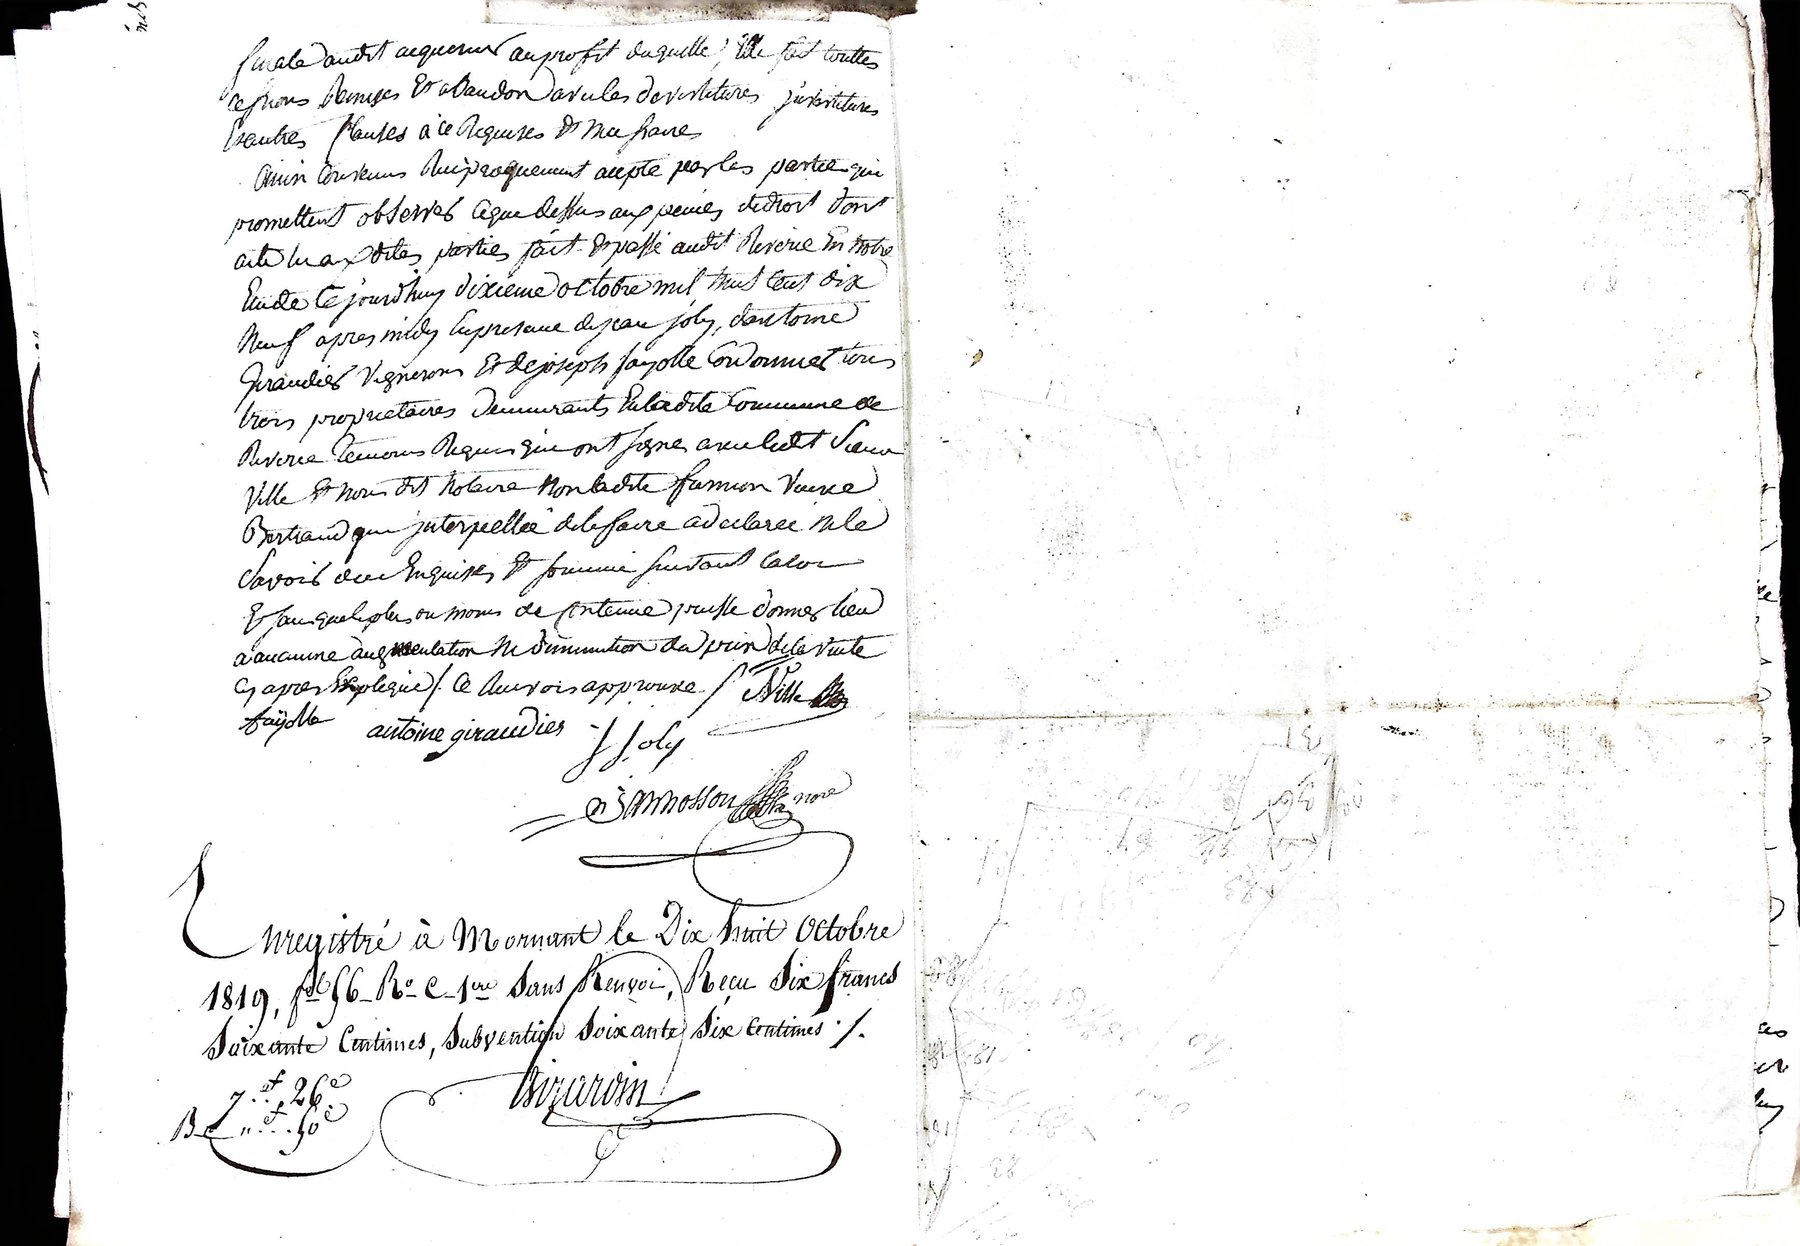 audit acquereur au profit duquelle, Elle fait touttes
cessions Remises Et abandon avec les devestitures jnvestitures
Et autres Clauses à ce Requises Et necessaires
Ainsi Convenus Reciproquement acepté par les partie qui
promettent observer ce que dessus aux peines de droit dont
acte lu aux dites parties fait Et passé audit Riverie En notre
Etude Ce jourd'huy dixieme octobre mil huit Cent dix
Neuf apres midy En presence de jean joly, dantoine
Giraudier Vignerons Et de joseph fayolle Cordonnier tous
trois proprietaires demeurants En ladite Commune de
Riverie temoins Requis qui ont signé avec ledit Sieur
Ville Et nous dit Notaire Non ladite Veuve
Bertrand que jnterpellée de le faire a declaree ne le
Savoir de ce Enquises Et sommée
Et sans que le plus ou moins de Contenue puisse donner lieu
a aucune augmentation Ni diminution du prix de la Vente
Cy apres Expliqué /. Ce Renvois approuvé / Ville
fayolle antoine giraudier J Joly
nore
Enregistré à Mornant le Dix huit Octobre
1819, fol 56 Ro C. 1ere Sans Renvoi, Reçu Six francs
Soixante Centimes, Subvention Soixante Six Centimes ./.
7.. f 26 c
B " .. f .. 50 c
Girardin